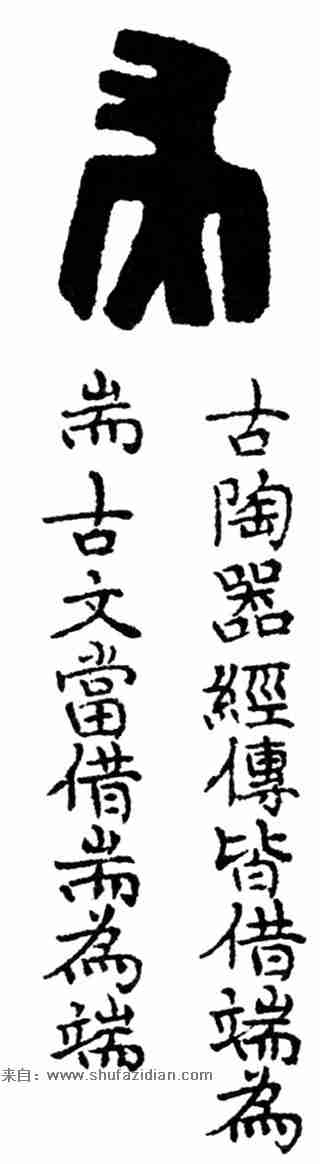 古陶器經傳皆借端為
耑古文當借耑為端
来自：www.shufazidian.com